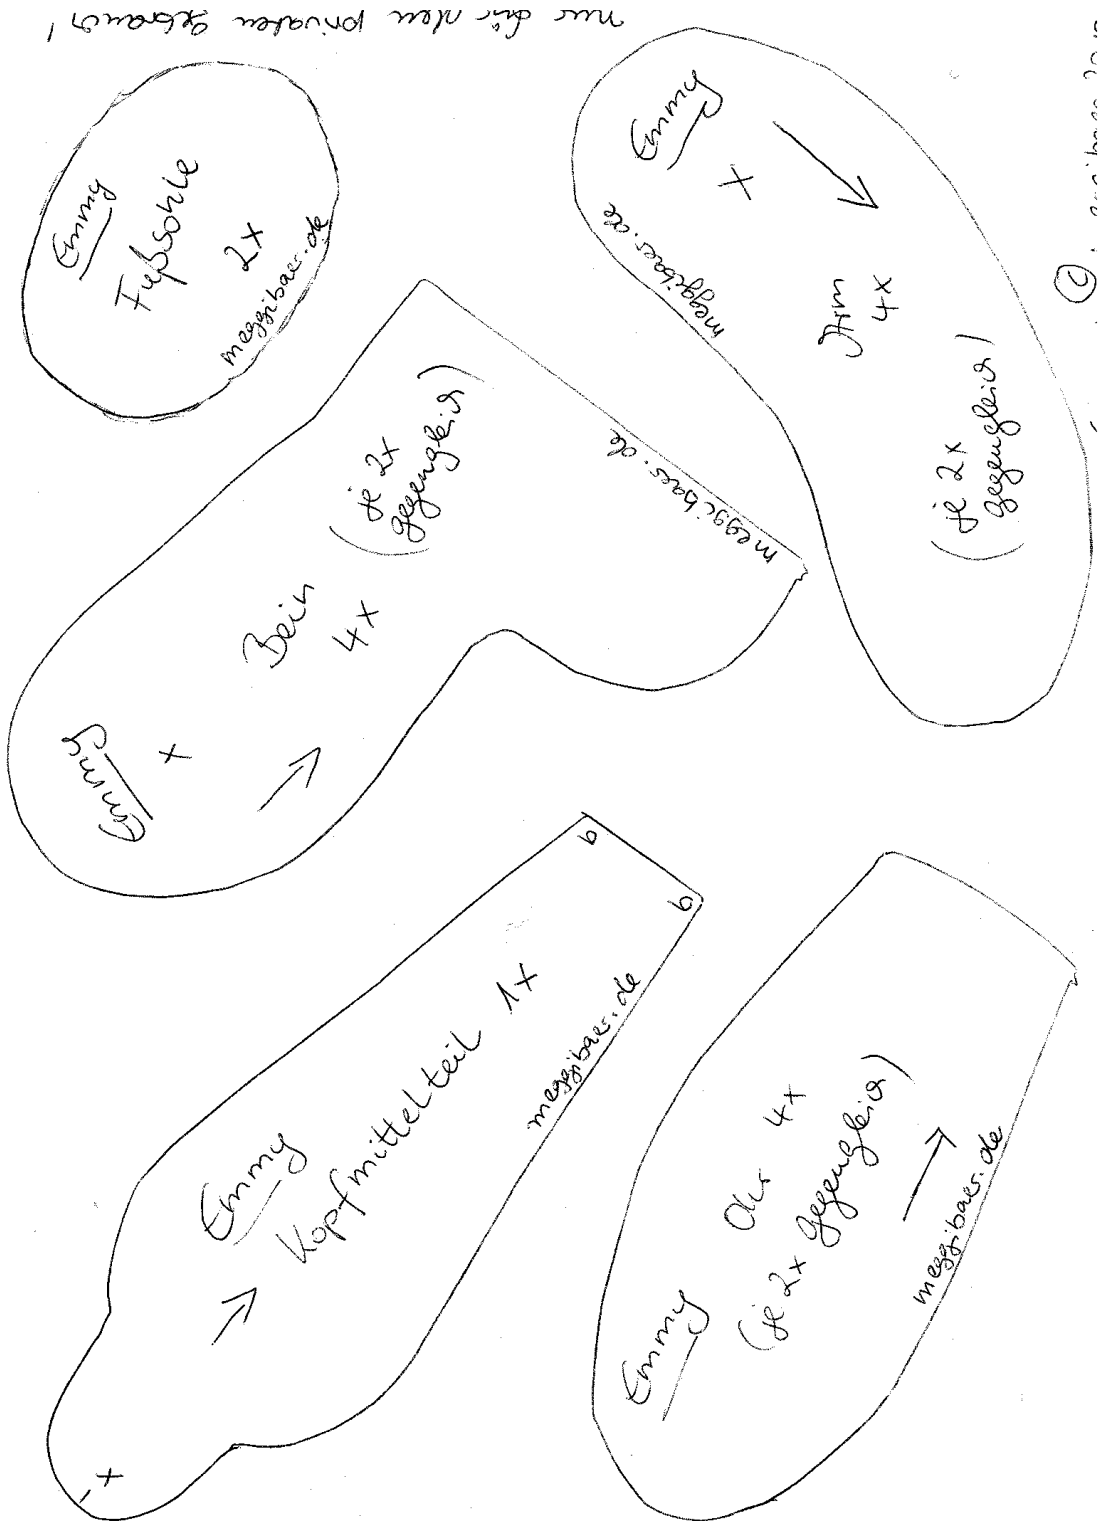 nur für den privaten Gebrauch!
Emmy
Fußsohle
2x
meggibaer.de
Emmy
X
meggibaer.de
Arm
4x
(je 2x
gegengleich)
©
Emmy
X
Bein
4x
(je 2x
gegengleich)
meggibaer.de
Emmy
Kopfmittelteil 1x
meggibaer.de
b
b
X
Emmy
Ohr 4x
(je 2x gegengleich)
meggibaer.de